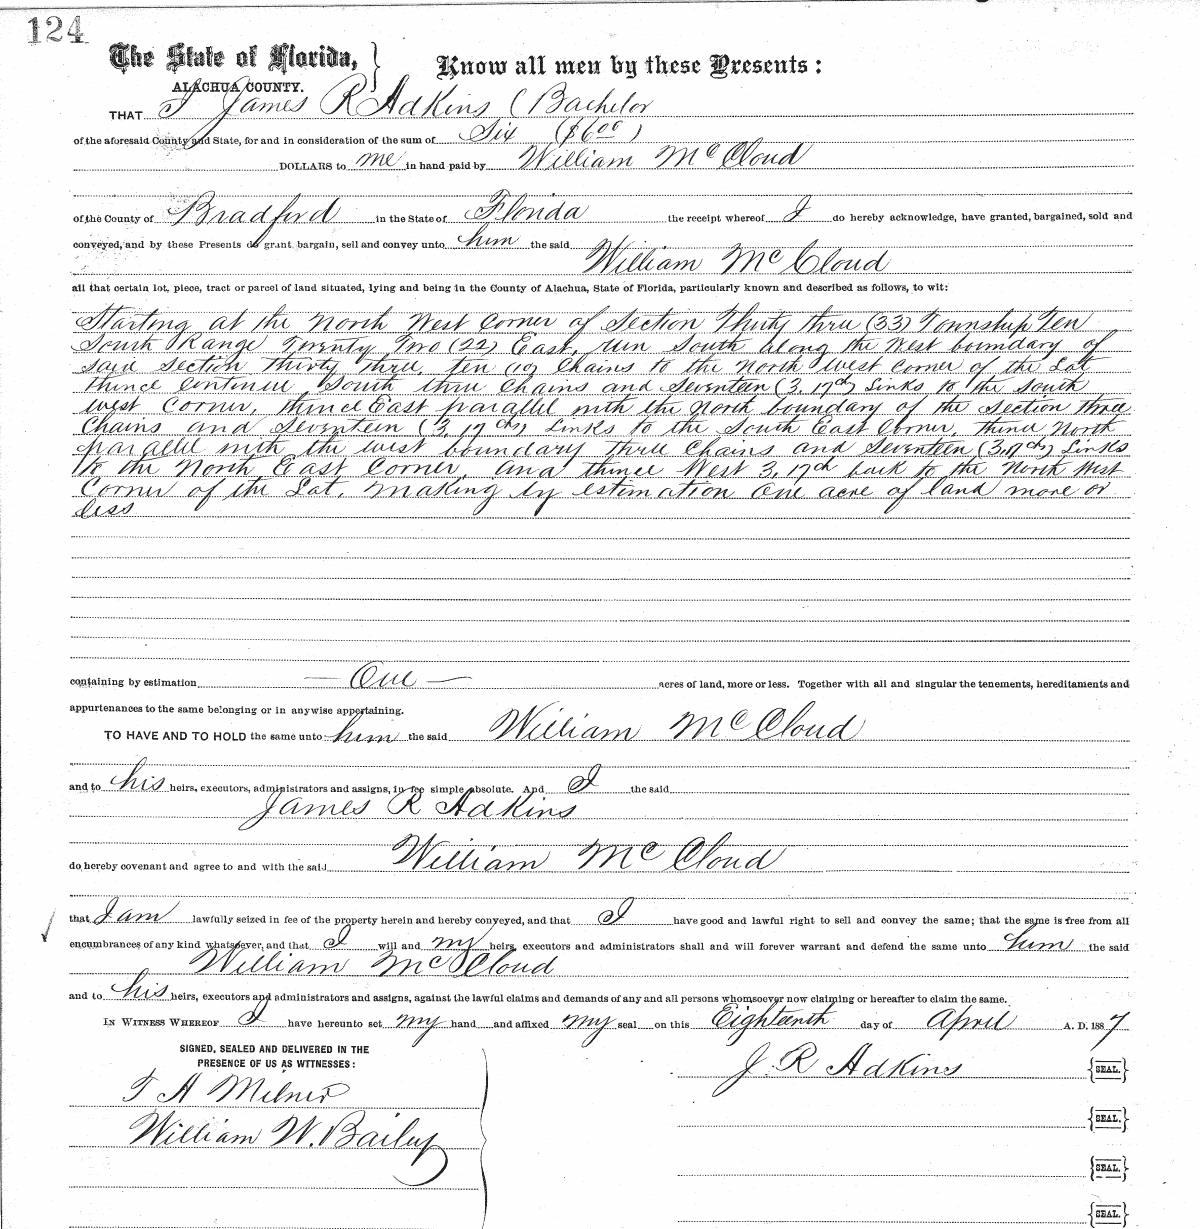 124
The State of Florida,
ALACHUA COUNTY.
Know all men by these Presents:
THAT I James R Adkins (Bachelor
of the aforesaid County and State, for and in consideration of the sum of Six ($6.00)
DOLLARS to me in hand paid by William McCloud
of the County of Bradford in the State of Florida the receipt whereof I do hereby acknowledge, have granted, bargained, sold and
conveyed, and by these Presents do grant, bargain, sell and convey unto him the said
William McCloud
all that certain lot, piece, tract or parcel of land situated, lying and being in the County of Alachua, State of Florida, particularly known and described as follows, to wit:
Starting at the North West Corner of Section Thirty three (33) Township Ten
South Range Twenty Two (22) East, run South along the West boundary of
said section thirty three, ten (10) Chains to the North West Corner of the Lot
thence continue South three Chains and Seventeen (3.17ch) Links to the South
West Corner, thence East parallel with the North boundary of the Section three
Chains and Seventeen (3.17ch) Links to the South East Corner, thence North
parallel with the west boundary three Chains and Seventeen (3.17ch) Links
to the North East Corner, and thence West 3.17ch back to the North West
Corner of the Lot, making by estimation One acre of land more or
less
containing by estimation — One — acres of land, more or less. Together with all and singular the tenements, hereditaments and
appurtenances to the same belonging or in anywise appertaining.
TO HAVE AND TO HOLD the same unto him the said William McCloud
and to his heirs, executors, administrators and assigns, in fee simple absolute. And I the said
James R Adkins
do hereby covenant and agree to and with the said William McCloud
that I am lawfully seized in fee of the property herein and hereby conveyed, and that I have good and lawful right to sell and convey the same; that the same is free from all
encumbrances of any kind whatsoever, and that I will and my heirs, executors and administrators shall and will forever warrant and defend the same unto him the said
William McCloud
and to his heirs, executors and administrators and assigns, against the lawful claims and demands of any and all persons whomsoever now claiming or hereafter to claim the same.
IN WITNESS WHEREOF I have hereunto set my hand and affixed my seal on this Eighteenth day of April A. D. 1887
SIGNED, SEALED AND DELIVERED IN THE
PRESENCE OF US AS WITNESSES:
J. R Adkins {SEAL.}
T A Milner
{SEAL.}
William W. Bailey
{SEAL.}
{SEAL.}